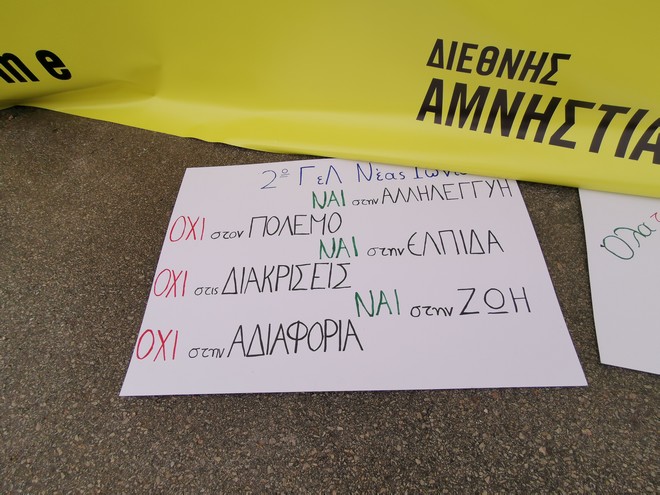 me
ΔΙΕΘΝΗΣ
ΑΜΝΗΣΤΙΑ
2ο ΓεΛ Νέας
ΝΑΙ στην ΑΛΛΗΛΕΓΓΥΗ
ΟΧΙ στον ΠΟΛΕΜΟ
ΝΑΙ στην ΕΛΠΙΔΑ
ΟΧΙ στις ΔΙΑΚΡΙΣΕΙΣ
ΝΑΙ στην ΖΩΗ
ΟΧΙ στην ΑΔΙΑΦΟΡΙΑ
Όλα